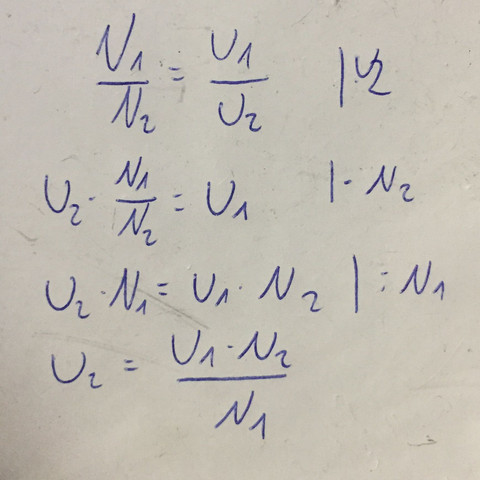 N₁/N₂ = U₁/U₂ |U₂
U₂ · N₁/N₂ = U₁ | · N₂
U₂ · N₁ = U₁ · N₂ | : N₁
U₂ = U₁ · N₂/N₁